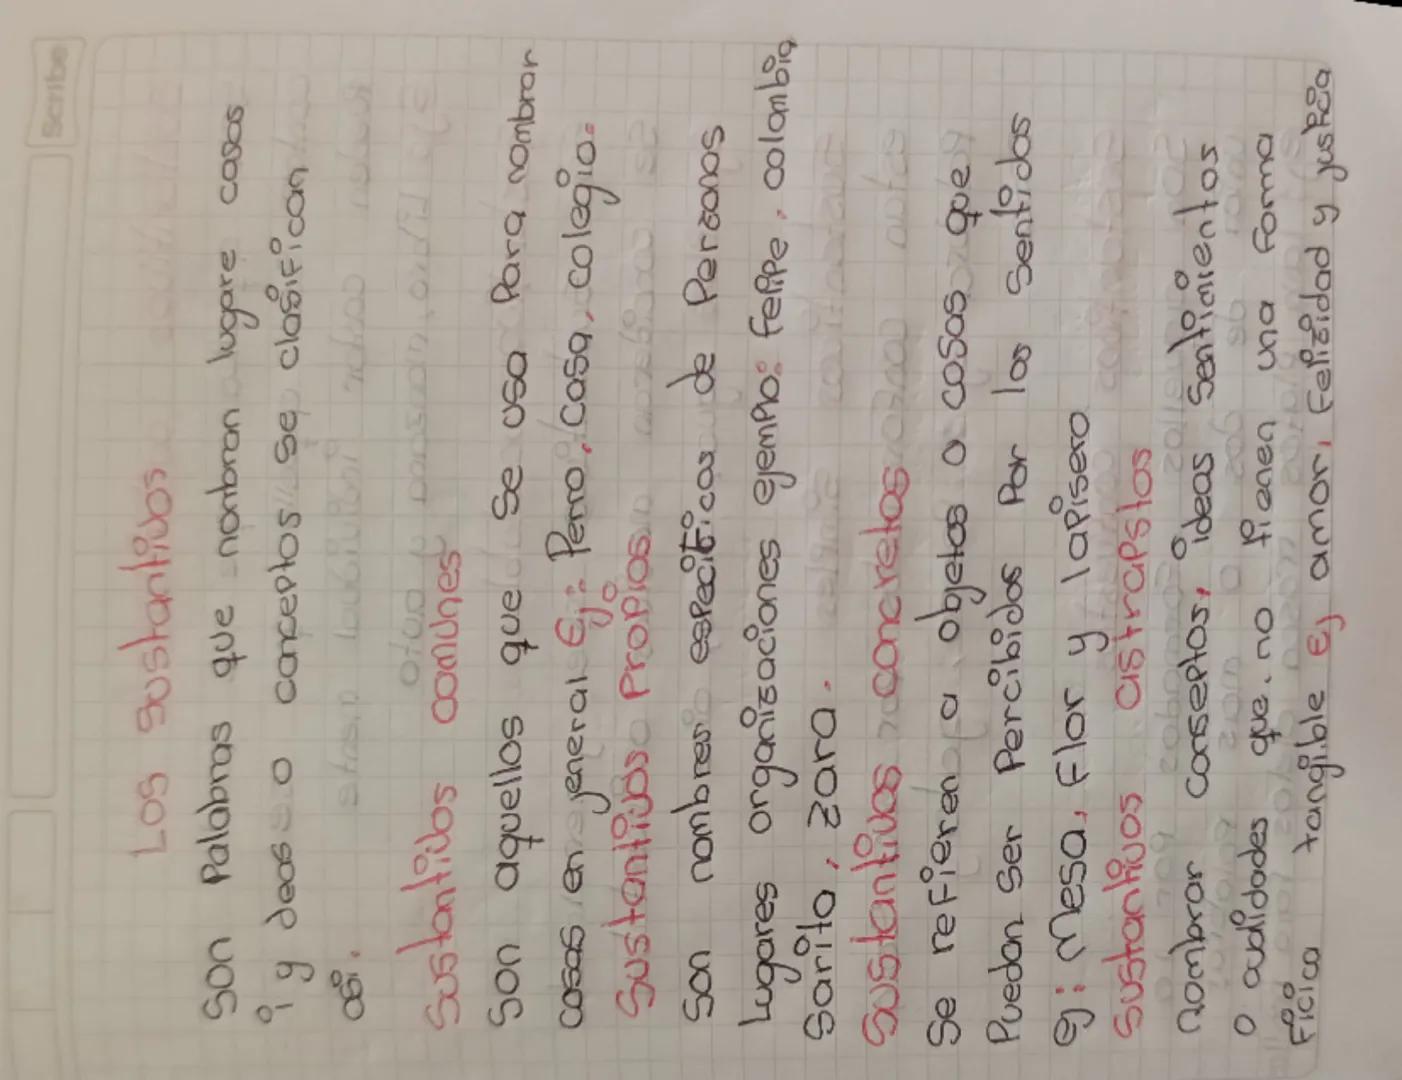 Scribe
Los sustantivos
Son Palabras que nonbran lugare cosas
i y deas o conceptos se clasifican
asi.
Sustantivos comunes
Son aquellos que se usa Para nombrar
cosas en general Ej: Perro, casa, colegio.
Sustantivos Propios
Son nombres especificas de Personas
Lugares organizaciones ejemplo: felipe, colombia
Sarito, zara.
Sustantivos concretos
Se refieren a objetos o cosas que
Puedan ser Percibidos Por los sentidos
ej: Mesa, Flor y lapisero
Sustantivos astrapstos
nombrar conseptos, ideas sentimientos
o cualidades que no tienen una forma
Ficica tangible Ej amor, felizidad y justicia